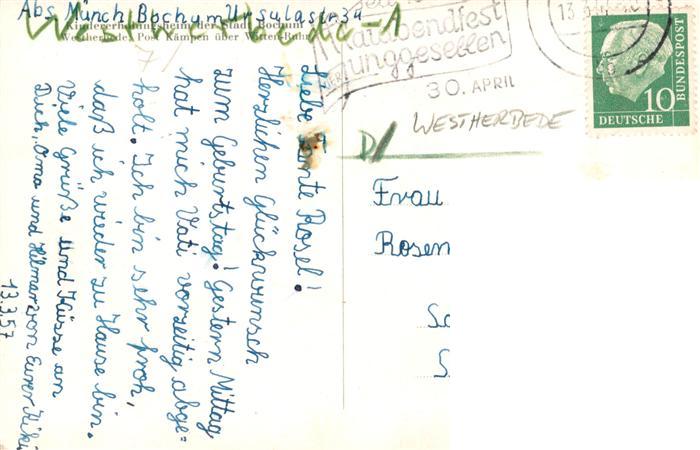 Abs. Münch Bochum Ursulastr 34
Kindererholungsheim der Stadt Bochum
Westherbede, Post Kämpen über Witten-Ruhr
Liebe Tante Rosel!
Herzlichen Glückwunsch
zum Geburtstag! Gestern Mittag
hat mich Vati vorzeitig abge=
holt. Ich bin sehr froh,
daß ich wieder zu Hause bin.
Viele Grüße und Küsse an
Dich, Oma und Hilmar von Eurer Kiki
13.3.57
Maiabendfest
Junggesellen
30. APRIL
10
DEUTSCHE
BUNDESPOST
D/
WESTHERBEDE
Frau
Rosen
Sc
S